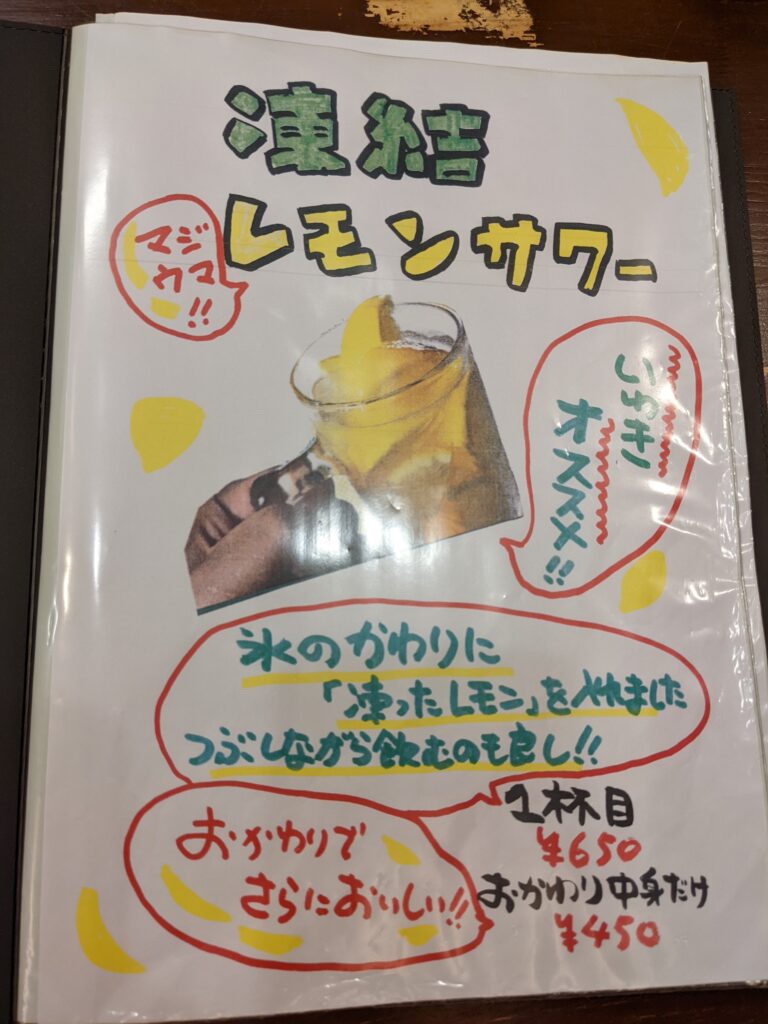 凍結
レモンサワー
マジ
ウマ!!
いゆキ
オススメ!!
氷のかわりに
「凍ったレモン」を入れました
つぶしながら飲むのも良し!!
おかわりで
さらにおいしい!!
1杯目
¥650
おかわり中身だけ
¥450